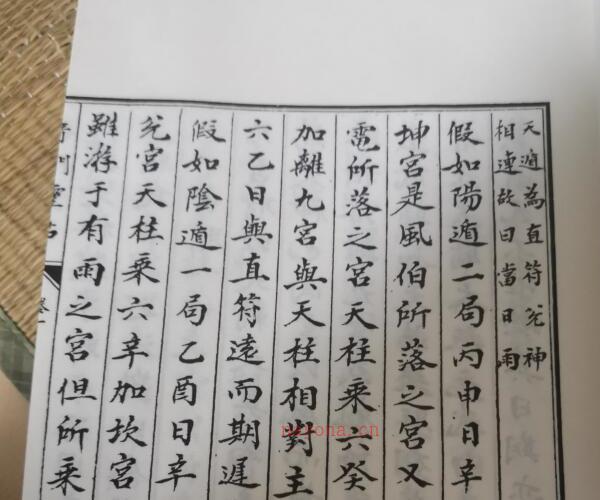 天遁為直符兊神
相連故曰當日雨
假如陽遁二局丙申日辛
坤宮是風伯所落之宮又
電所落之宮天柱乘六癸
加離九宮與天柱相對主
六乙日與直符遠而期遲
假如陰遁一局乙酉日辛
兊宮天柱乘六辛加坎宮
雖游于有雨之宮但所乘
nayona.cn